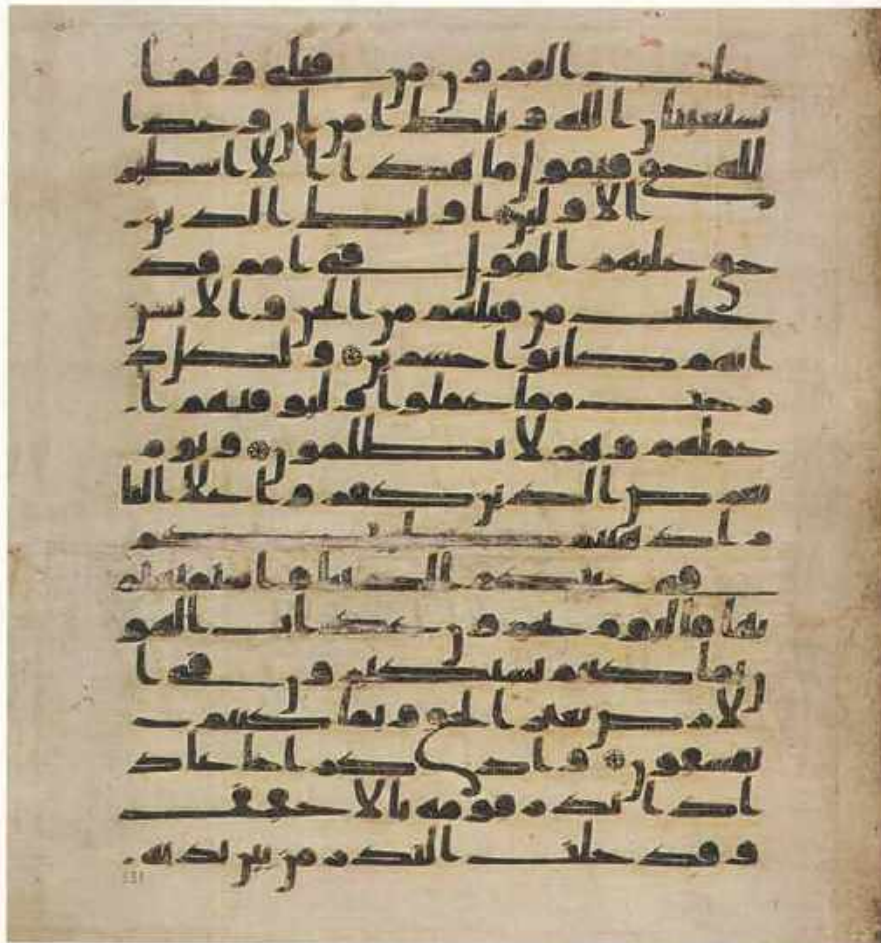 خلت القرون من قبلي وهما
يستغيثان الله ويلك امن ان وعد ا
لله حق فيقول ما هذا الا اسطير
الاولين اوليك الذين
حق عليهم القول في امم قد
خلت من قبلهم من الجن والانس
انهم كانوا خسرين ولكل د
رجت مما عملوا وليوفيهم ا
عملهم وهم لا يظلمون ويوم
يعرض الذين كفروا علا النا
ر اذهبتم طيبتكم
في حيتكم الدنيا واستمتعتم
بها فاليوم تجزون عذاب الهو
ن بما كنتم تستكبرون في ا
لارض بغير الحق وبما كنتم
تفسقون واذكر اخا عاد
اذ انذر قومه بالاحقف
وقد خلت النذر من بين يديه